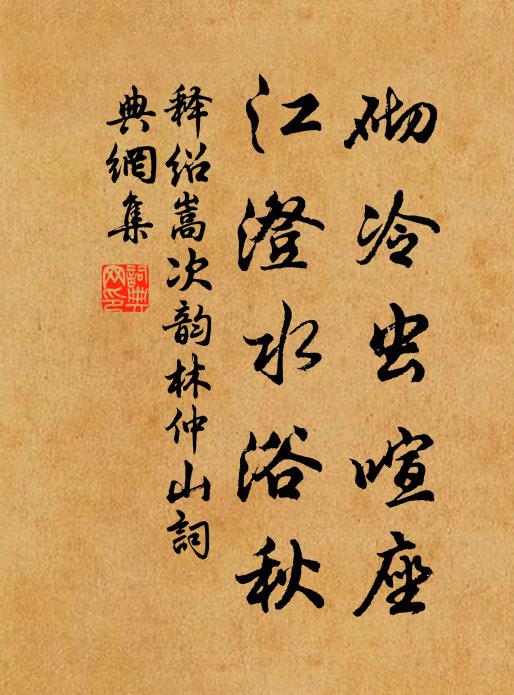 砌冷虫喧座
江澄水浴秋
释绍嵩次韵林仲山詞
典網集
詞典网印